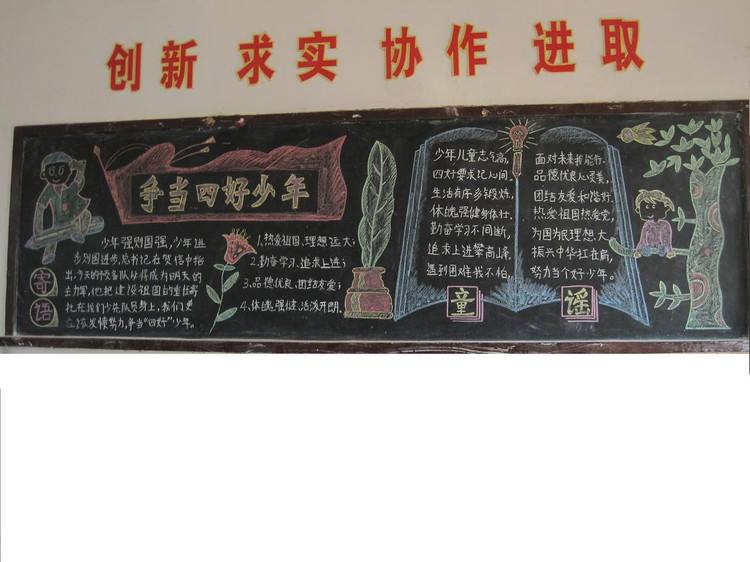 创新 求实 协作 进取
争当四好少年
寄语
少年强则国强，少年进
步则国进步。总书记在贺信中指
出，今天的预备队必将成为明天的
主力军，他把建设祖国的重任寄
托在我们少先队员身上，我们更
应该发愤努力，争当“四好”少年。
1、热爱祖国、理想远大；
2、勤奋学习、追求上进；
3、品德优良、团结友爱；
4、体魄强健、活泼开朗。
少年儿童志气高，
四好要求记心间，
生活有序多锻炼，
体魄强健身体壮，
勤奋学习不间断，
追求上进攀高峰，
遇到困难我不怕，
面对未来我能行。
品德优良心灵美，
团结友爱和谐好，
热爱祖国热爱党，
为国为民理想大，
振兴中华扛在肩，
努力当个好少年。
童谣